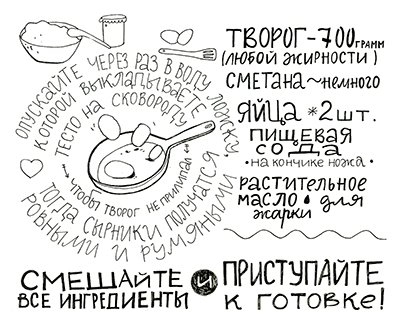 ОПУСКАЙТЕ ЧЕРЕЗ РАЗ В ВОДУ ЛОЖКУ,
КОТОРОЙ ВЫКЛАДЫВАЕТЕ
ТЕСТО НА СКОВОРОДУ
ЧТОБЫ ТВОРОГ НЕ ПРИЛИПАЛ
ТОГДА СЫРНИКИ ПОЛУЧАТСЯ
РОВНЫМИ И РУМЯНЫМИ
ТВОРОГ-700 ГРАММ
(ЛЮБОЙ ЖИРНОСТИ)
СМЕТАНА~НЕМНОГО
ЯЙЦА *2ШТ.
ПИЩЕВАЯ
СОДА
•НА КОНЧИКЕ НОЖА•
РАСТИТЕЛЬНОЕ
МАСЛО • ДЛЯ
ЖАРКИ
СМЕШАЙТЕ
ВСЕ ИНГРЕДИЕНТЫ
ПРИСТУПАЙТЕ
К ГОТОВКЕ!